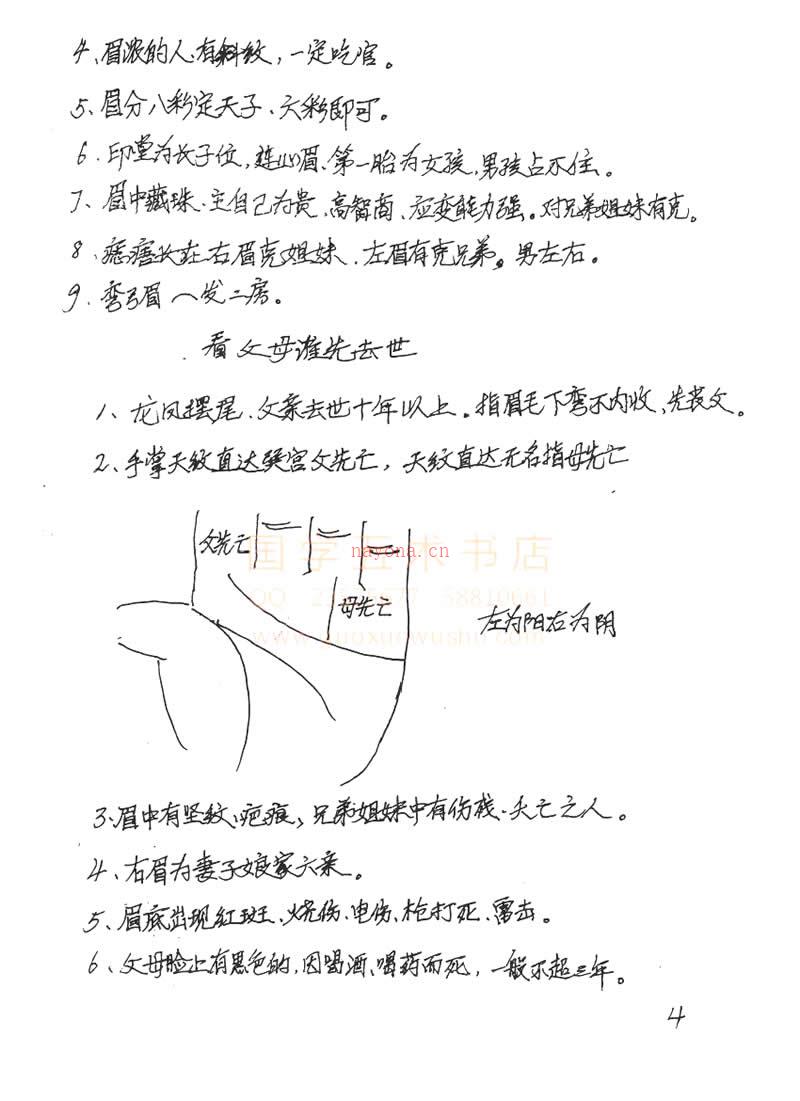 4、眉浓的人、有斜纹，一定吃官。
5、眉分八彩定天子、六彩即可。
6．印堂为长子位，连心眉、第一胎为女孩，男孩占不住。
7、眉中藏珠、主自己为贵，高智商、应变能力强。对兄弟姐妹有克。
8．痣瘩长在右眉克姐妹、左眉有克兄弟。男左右。
9．弯弓眉 一发二房。
看父母谁先去世
1、龙凤摆尾、父亲去世十年以上。指眉毛下弯不内收、先丧父。
2、手掌天纹直达巽宫父先亡，天纹直达无名指母先亡
父先亡
母先亡
左为阳右为阴
国学五术书店
nayona.cn
58810661
www.guoxuewushu.com
3、眉中有竖纹、疤痕，兄弟姐妹中有伤残、夭亡之人。
4、右眉为妻子娘家六亲。
5、眉底出现红斑、烧伤、电伤、枪打死、雷击。
6、父母脸上有黑色的，因喝酒、喝药而死，一般不超三年。
4